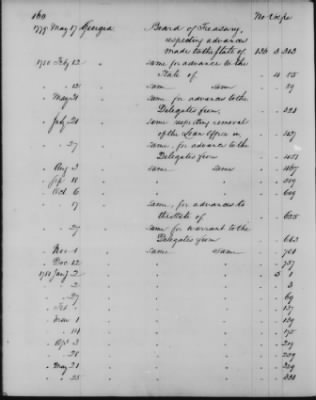 160 No Vol. pa
1779 May 17 Georgia Board of Treasury,
respecting advances
made to the State of 136 3 313
1780 Feby 12 " same for advance to the
State of " 4 85
" " same same " " 89
" May 31 " same, for advances to the
Delegates from
" July 21 " same respecting removal
of the Loan Office in
" " 27 " same, for advance to the
Delegates from
" Aug 3 " same same
" Sep 11 " " "
" Oct 6 " " "
" " 17 " same, for advances to
the State of " " 625
" " 27 " same for warrant to the
Delegates from " " 663
" Nov 1 " same same
" Dec 12 " " " " " 757
1781 Jany 2 " " " " 5 1
" " 2 " " " " " 3
" " 27 " " " " " 69
" Feb
" Mar 1 " " " " " 139
" " 14 " " " " " 175
" Apl 3 " " " " " 219
" " 28 " " "
" May 21 " " "
" " 25 " " "